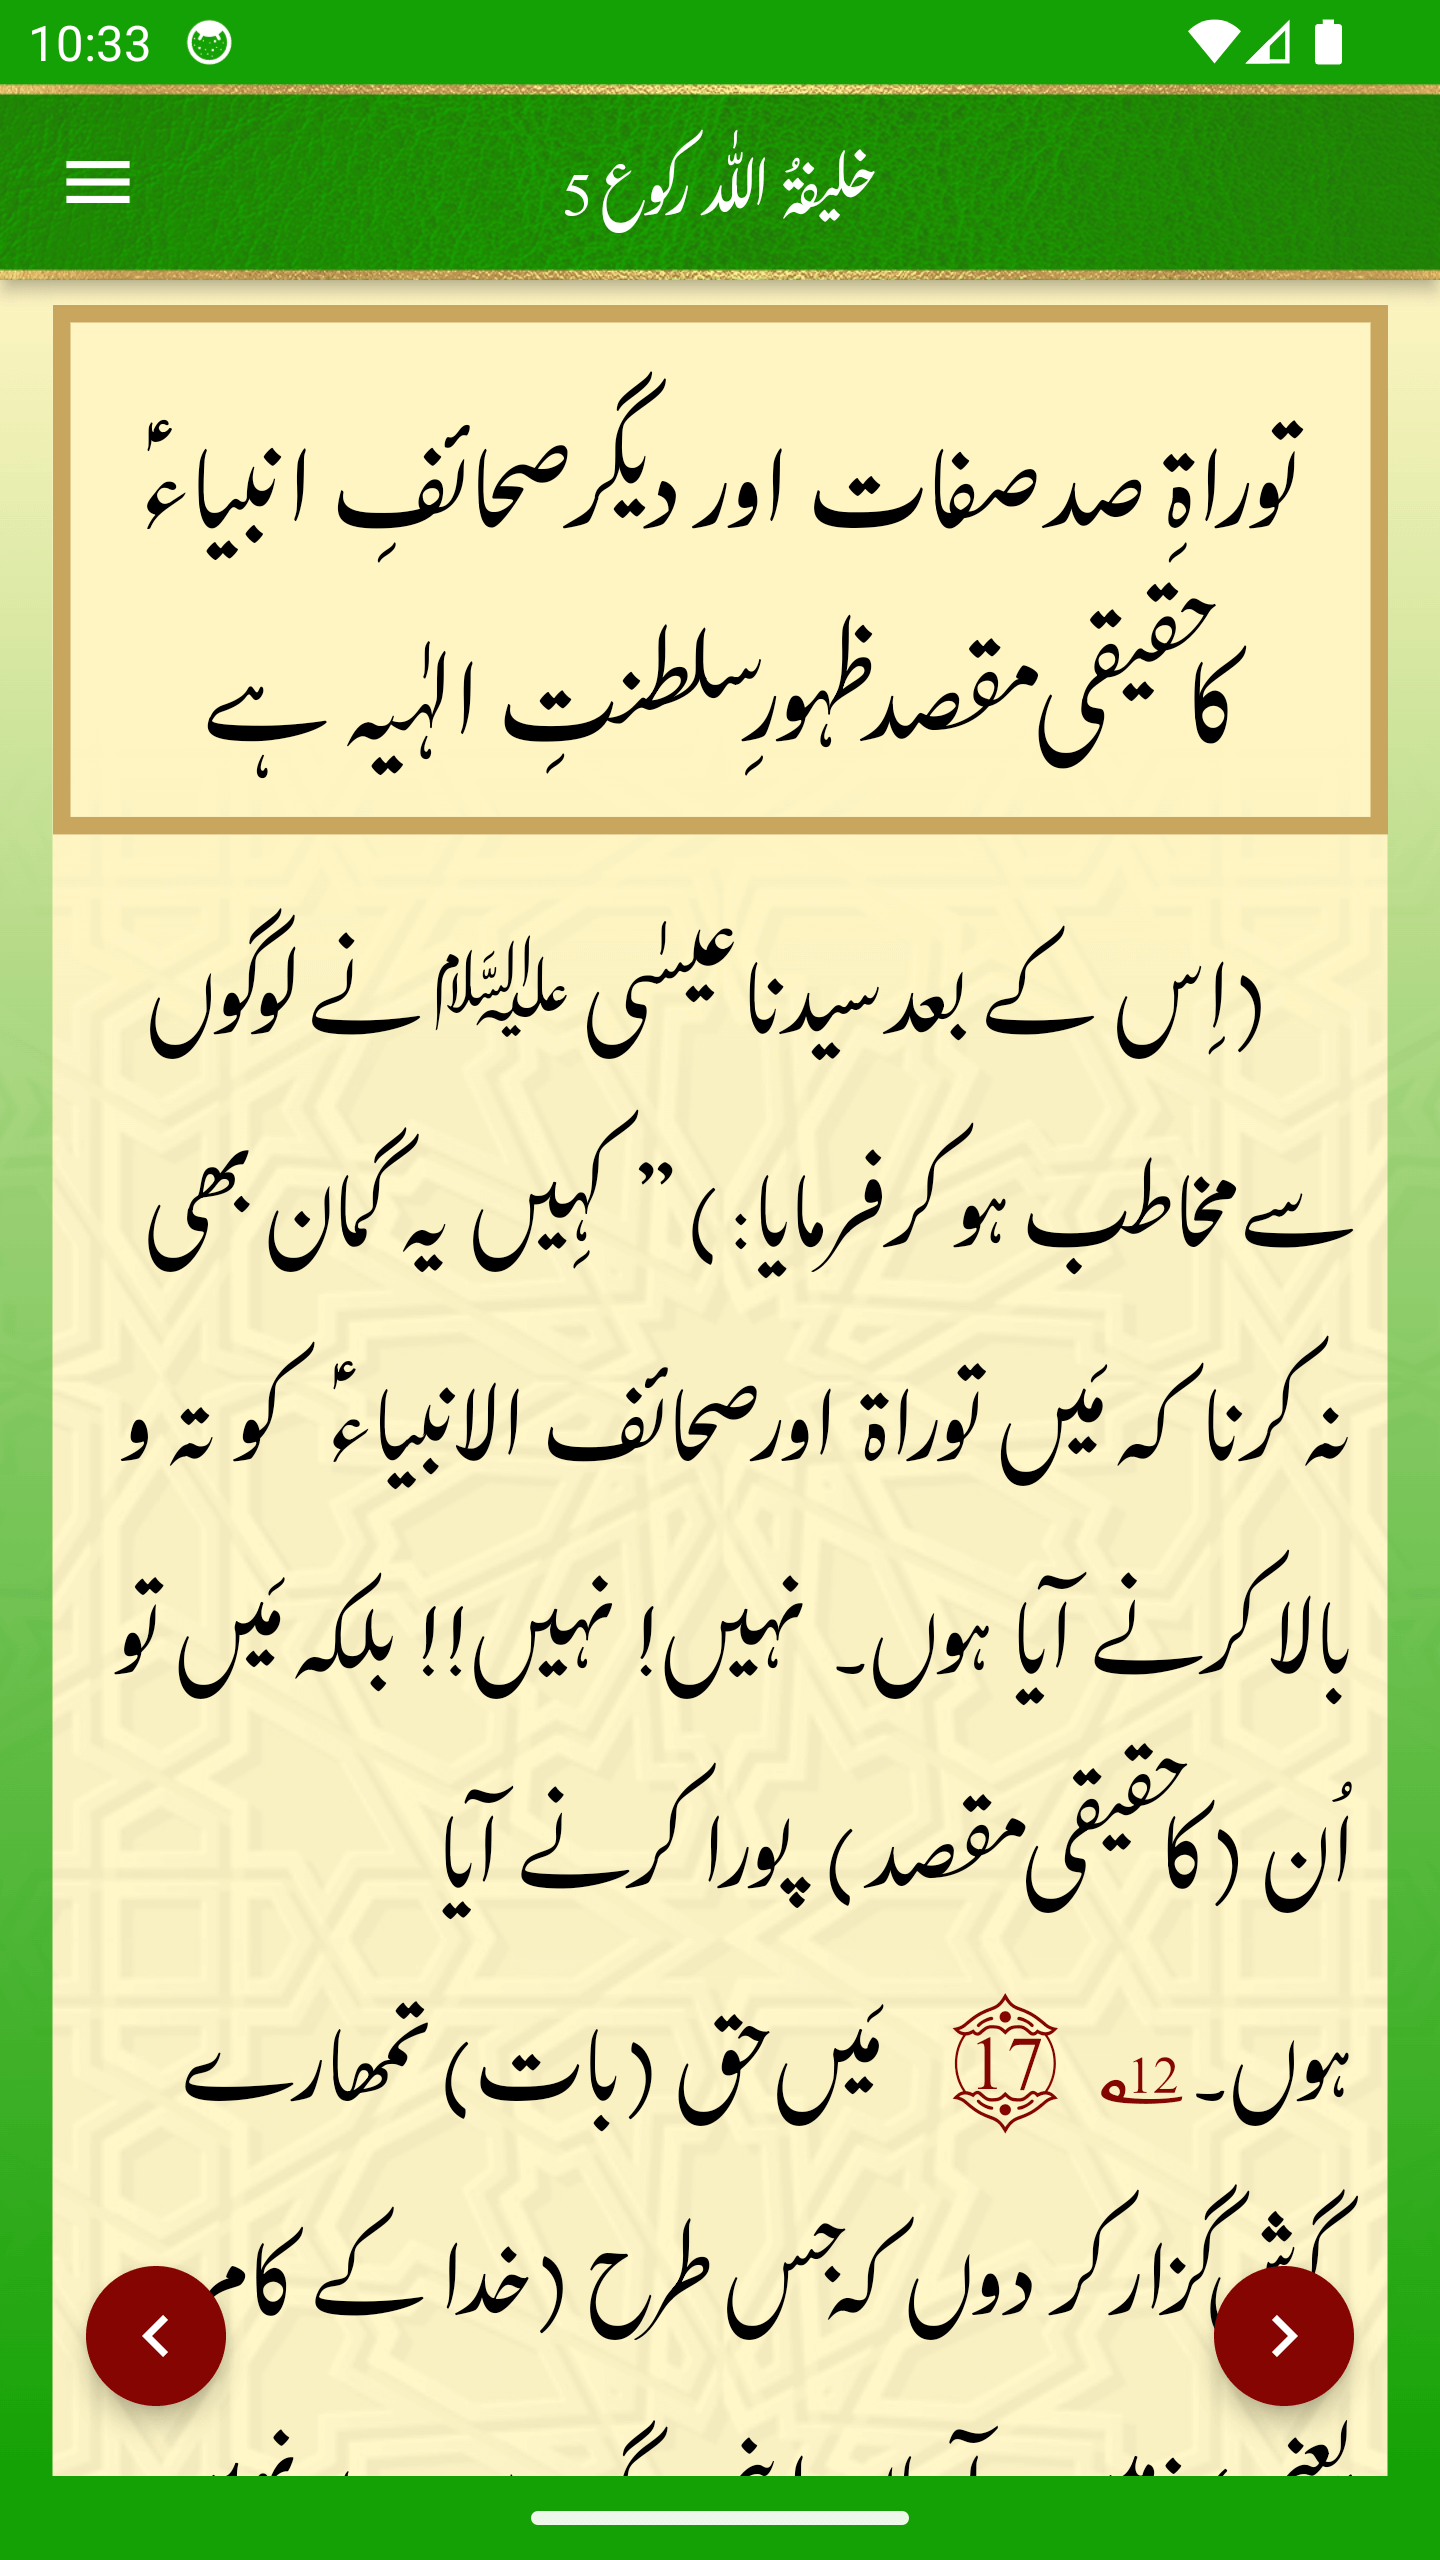 10:33
خلیفۃُ اللّٰہ رکوع 5
توراۃِ صد صفات اور دیگر صحائفِ انبیاءؑ
کا حقیقی مقصد ظہورِ سلطنتِ الہٰیہ ہے
(اِس کے بعد سیدنا عیسٰی علیہ السّلام نے لوگوں
سے مخاطب ہو کر فرمایا:) ” کہِیں یہ گمان بھی
نہ کرنا کہ مَیں توراۃ اور صحائف الانبیاءؑ کو تہ و
بالا کرنے آیا ہوں۔ نہیں! نہیں!! بلکہ مَیں تو
اُن (کا حقیقی مقصد) پورا کرنے آیا
ہوں۔ 12؎ 17 مَیں حق (بات) تمھارے
گزار کر دوں کہ جس طرح (خدا کے کام